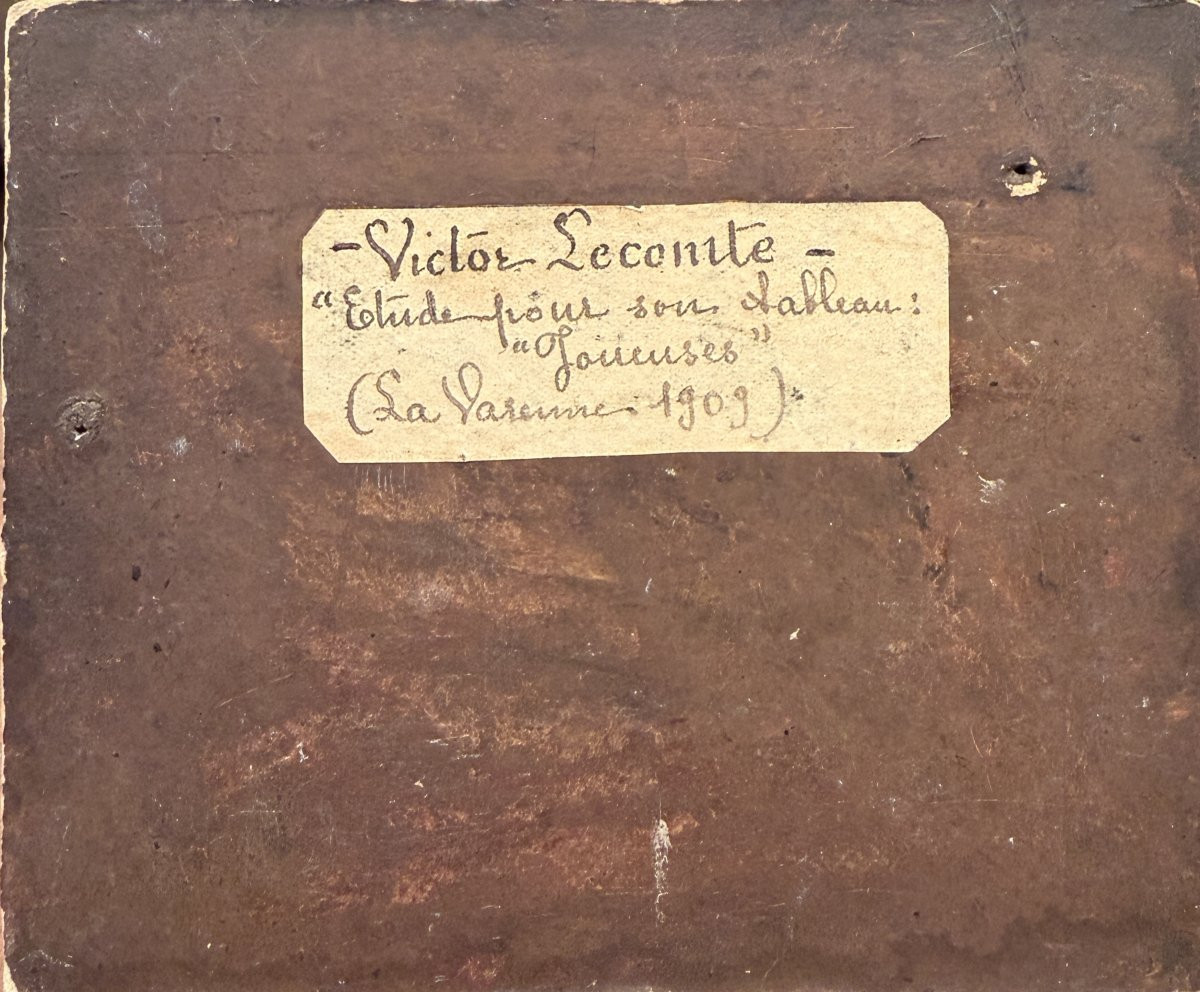 - Victor Lecomte -
"Etude pour son tableau :
"Joueuses"
(La Varenne. 1909)